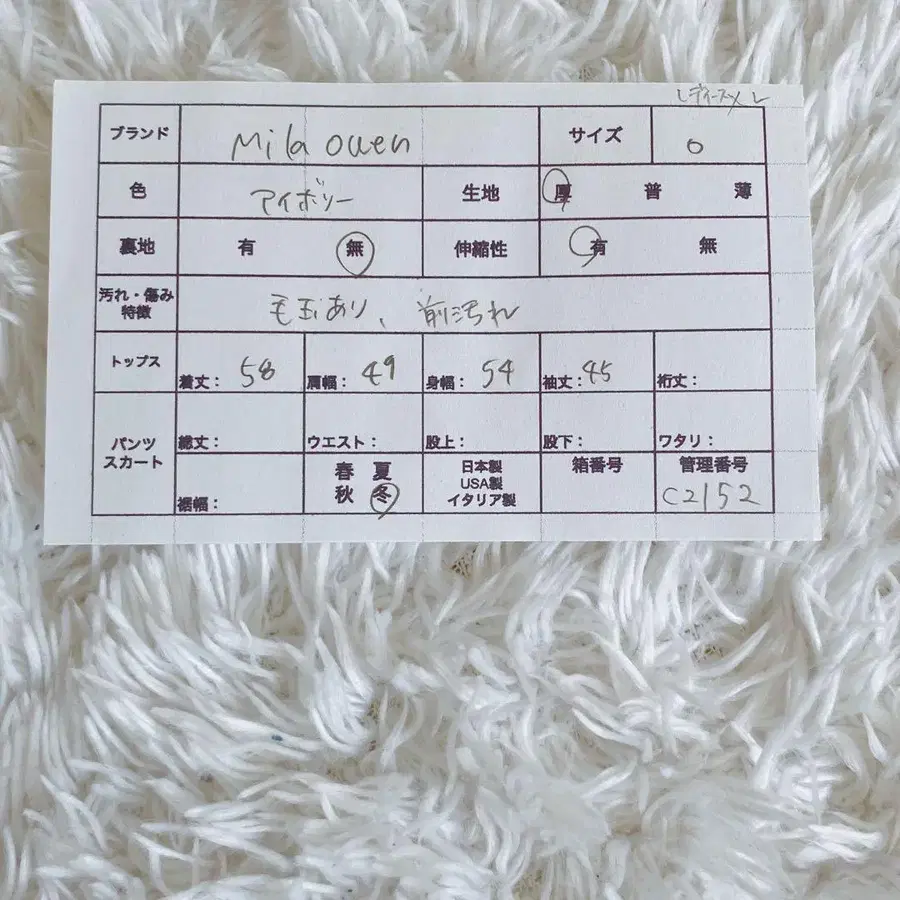 レディースXL
ブランド Mila Owen サイズ 0
色 アイボリー 生地 厚 普 薄
裏地 有 無 伸縮性 有 無
汚れ・傷み
特徴 毛玉あり、前汚れ
トップス 着丈: 58 肩幅: 49 身幅: 54 袖丈: 45 裄丈:
パンツ
スカート
総丈: ウエスト: 股上: 股下: ワタリ:
裾幅:
春 夏
秋 冬
日本製
USA製
イタリア製
箱番号
管理番号
C2152